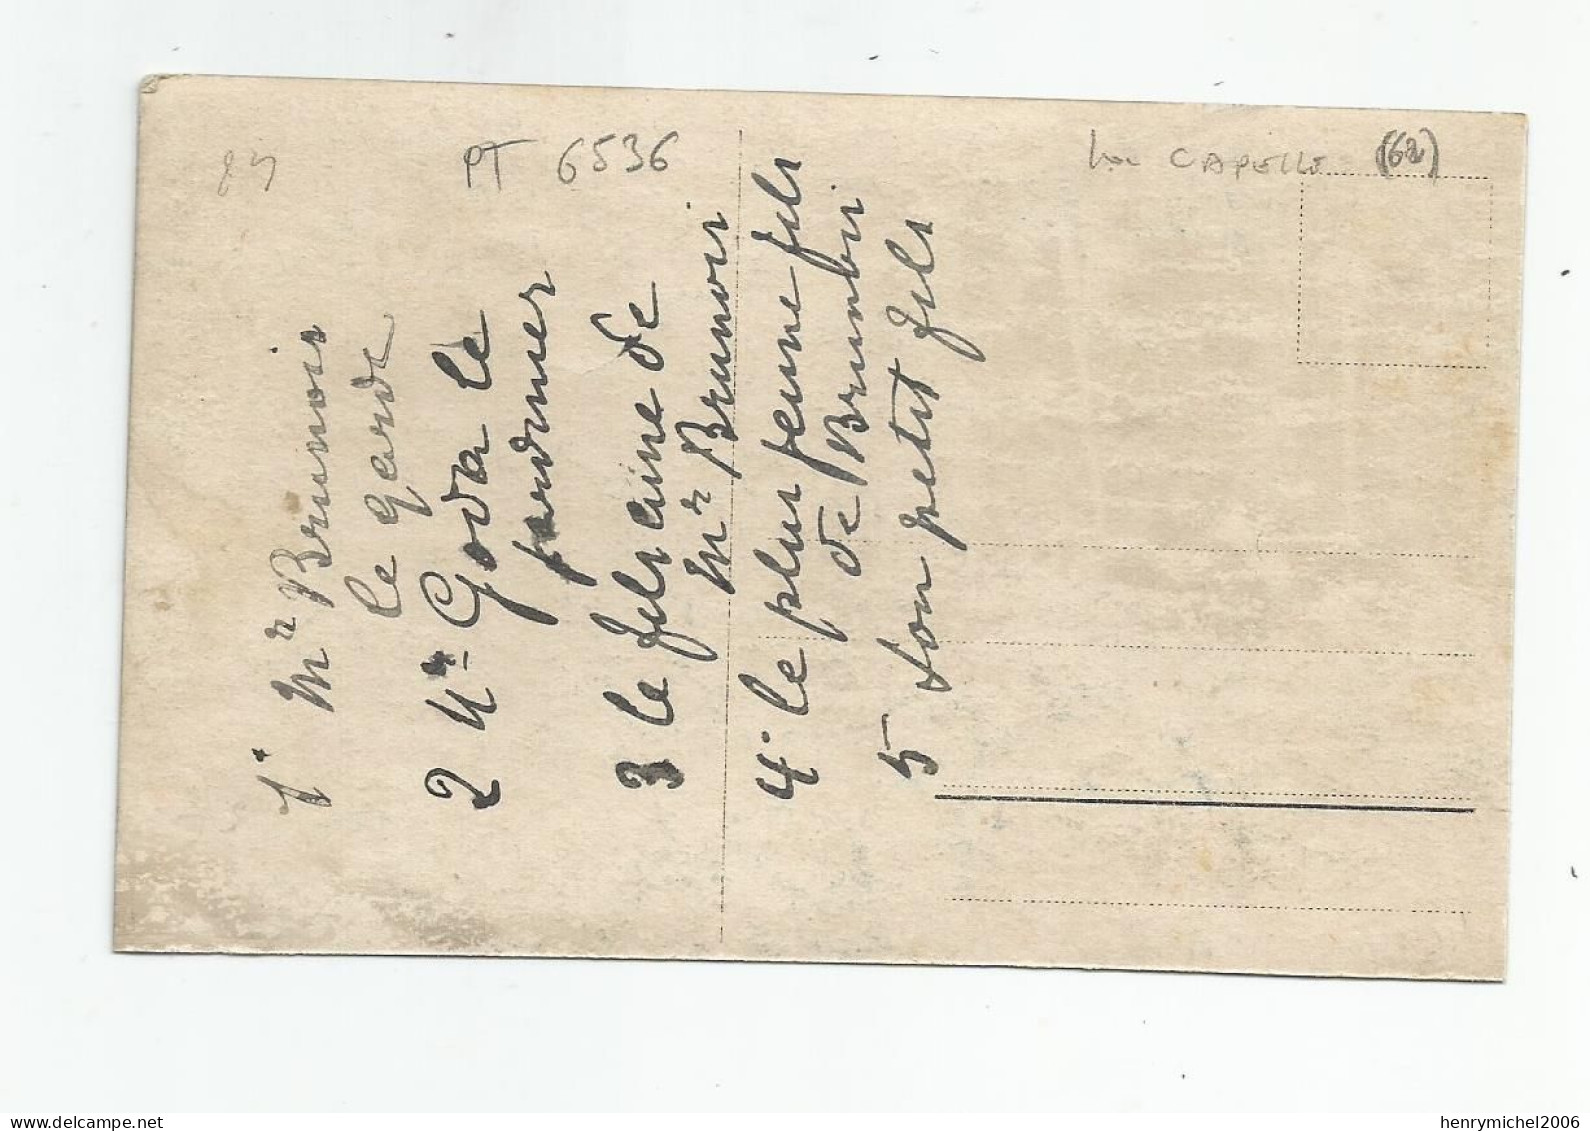 89
PT 6536
La CAPELLE (62)
1° Mr Brunois
le garde
2 Mr Goda le
jardinier
3 le fils aine de
Mr Brunois
4° le plus jeune fils
de Brunois
5 son petit fils
www.delcampe.net
henrymichel2006